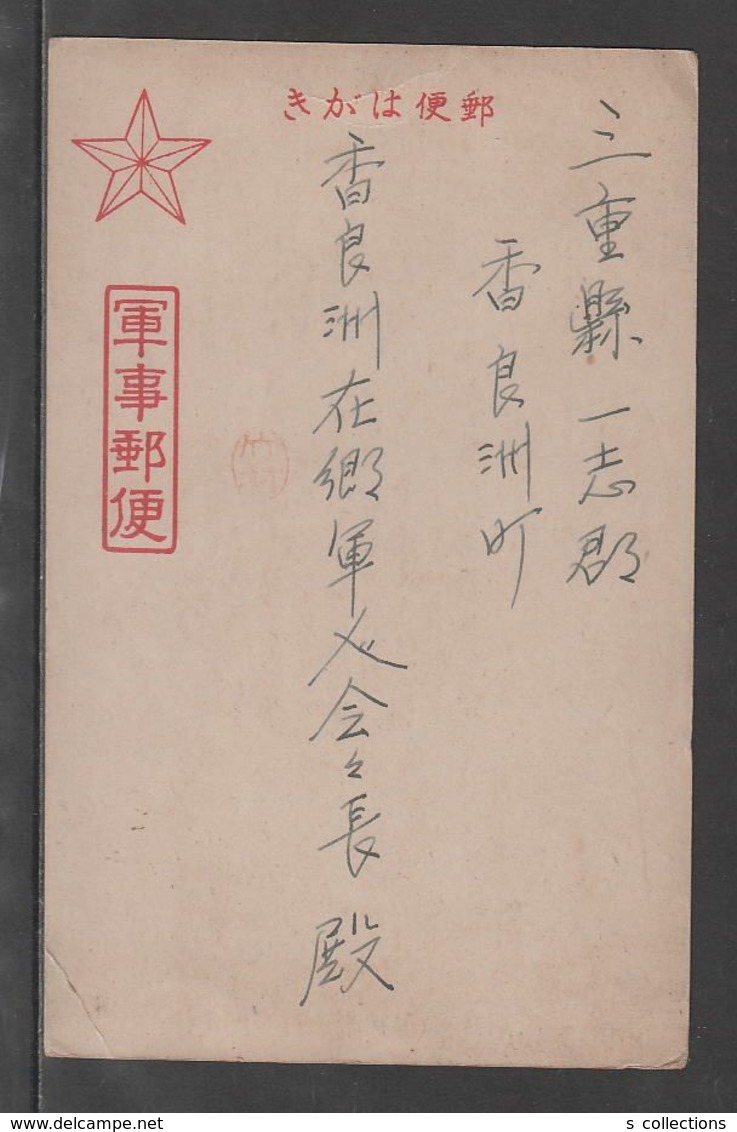 きがは便郵
三重縣一志郡
香良洲町
香良洲在郷軍人会々長殿
軍事郵便
s collections